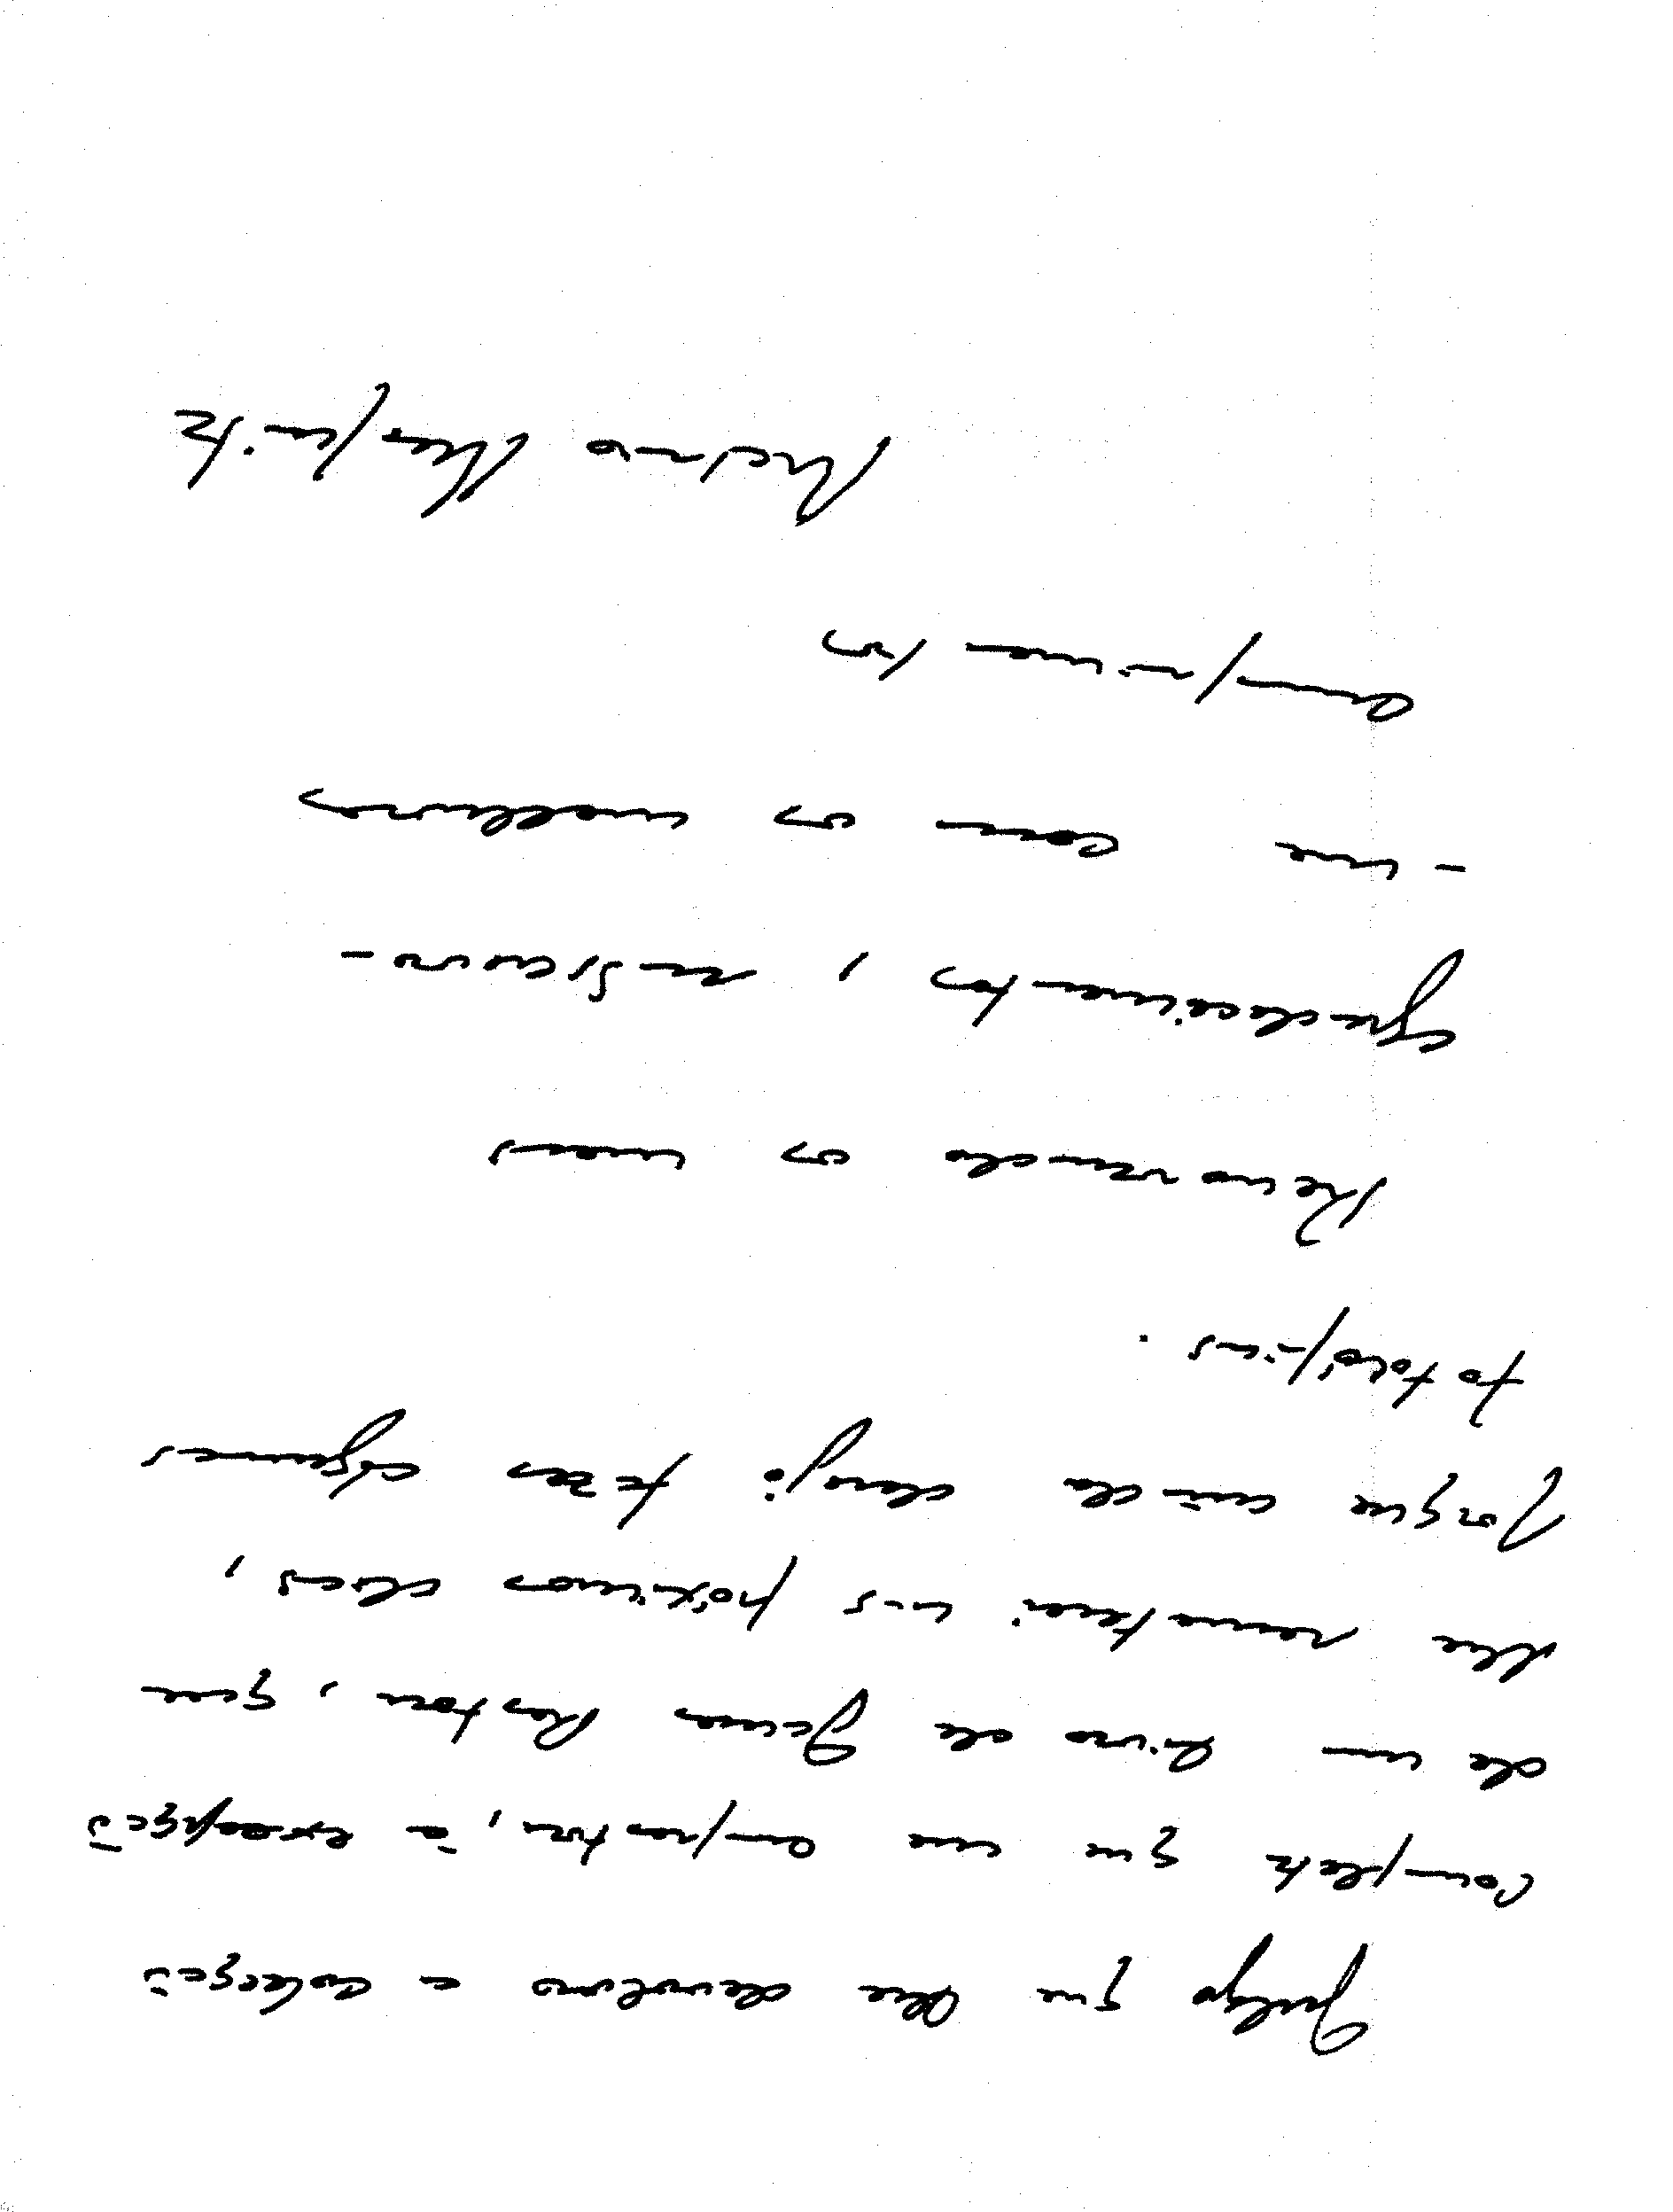 Julgo que lhe devolvo a colecção
completa que me emprestou, à excepção
de um livro de Jaime Cortesão, que
lhe remeterei nos próximos dias,
porque ainda desejo fazer algumas
fotocópias.
Renovando os meus
agradecimentos, subscrevo-
-me com os melhores
cumprimentos